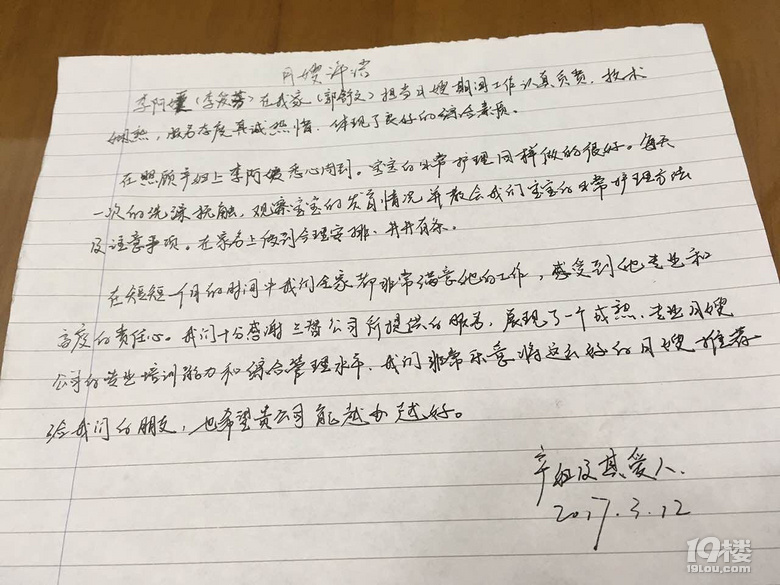 月嫂评语
李阿姨(李发芬)在我家(郭舒文)担当月嫂期间工作认真负责,技术
娴熟,服务态度真诚热情,体现了良好的综合素质。
在照顾产妇上李阿姨悉心周到。宝宝的日常护理同样做的很好。每天
一次的洗澡抚触,观察宝宝的发育情况并教会我们宝宝的日常护理方法
及注意事项。在家务上做到合理安排,井井有条。
在短短一个月的时间中我们全家都非常满意他的工作,感受到他专业和
高度的责任心。我们十分感谢三替公司所提供的服务,展现了一个成熟、专业月嫂
公司的专业培训能力和综合管理水平,我们非常乐意将这么好的月嫂推荐
给我们的朋友,也希望贵公司能越办越好。
产妇及其爱人.
2017.3.12
19楼
19lou.com